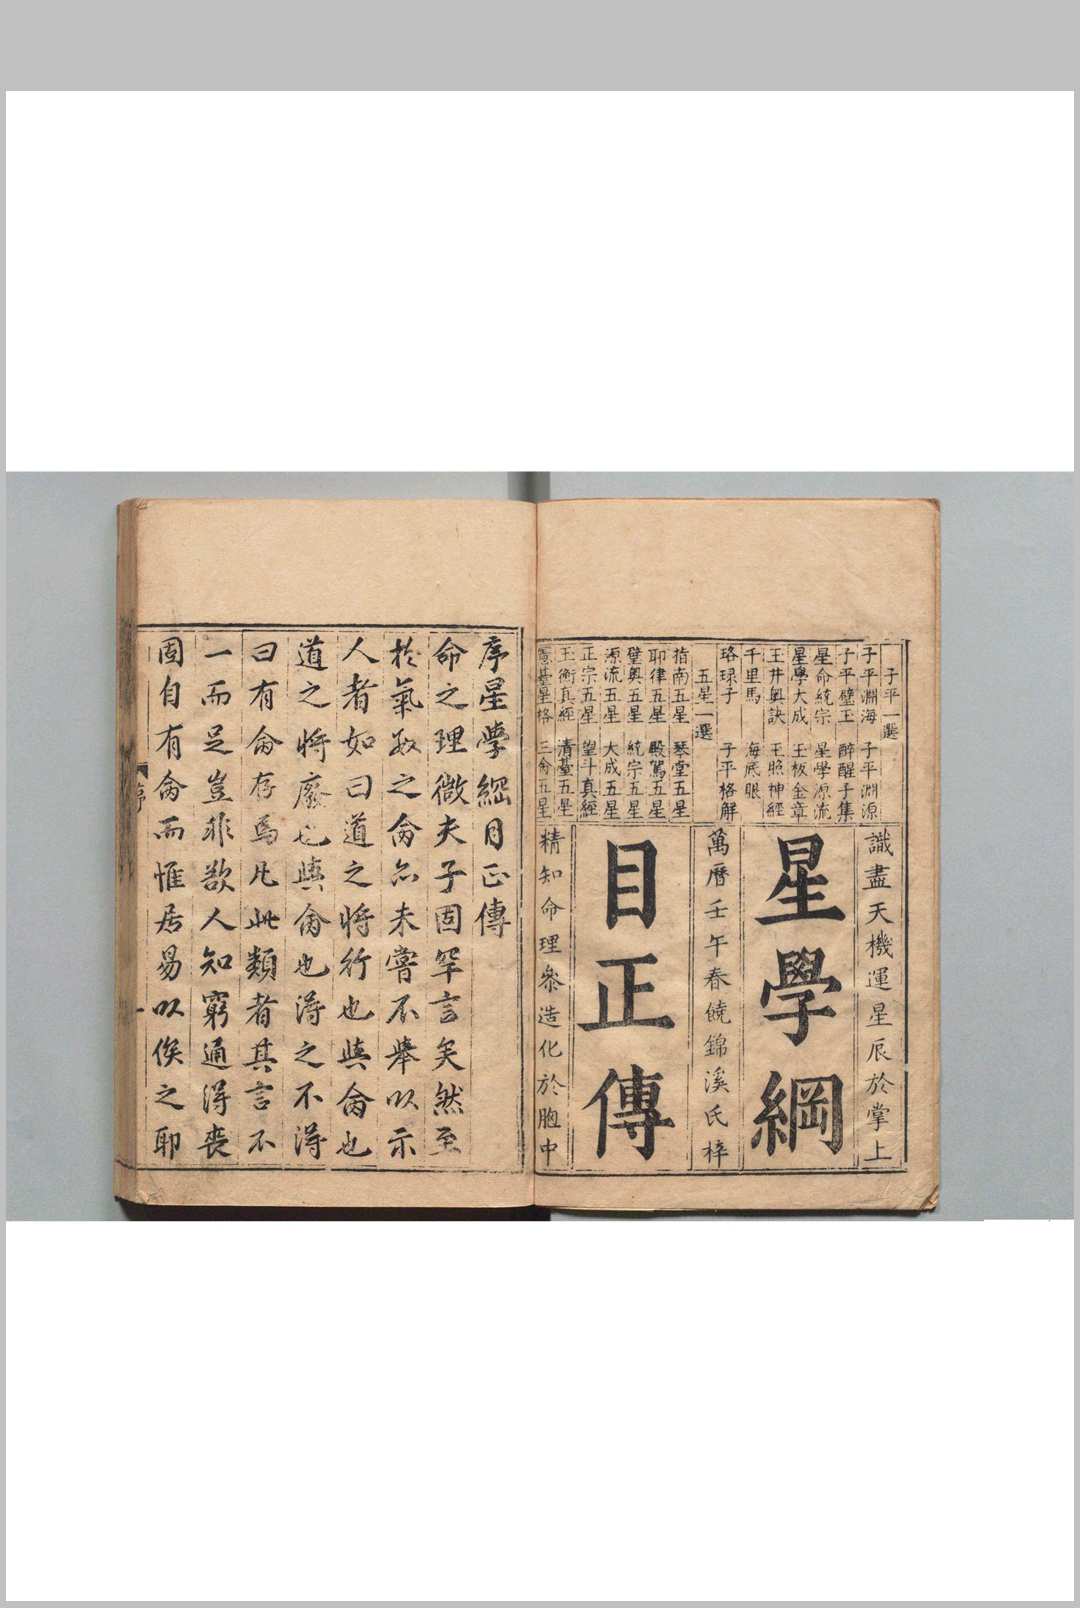 子平一選
子平淵海 子平淵源
子平璧玉 醉醒子集
星命統宗 星學源流
星學大成 玉板金章
玉井奥訣 玉照神經
千里馬 海底眼
珞琭子 子平格解
五星一選
指南五星 琴堂五星
耶律五星 殿駕五星
璧奥五星 統宗五星
源流五星 大成五星
正宗五星 望斗真經
玉衡真經 清臺五星
臺星格 三命五星
識盡天機運星辰於掌上
星學綱
萬曆壬午春饒錦溪氏梓
目正傳
精知命理叅造化於胸中
序星學綱目正傳
命之理微夫子固罕言矣然至
於氣数之命亦未嘗不舉以示
人者如曰道之将行也與命也
道之将廢也與命也得之不得
曰有命存焉凡此類者其言不
一而足豈非欲人知窮通得喪
固自有命而惟居易以俟之耶
序
一